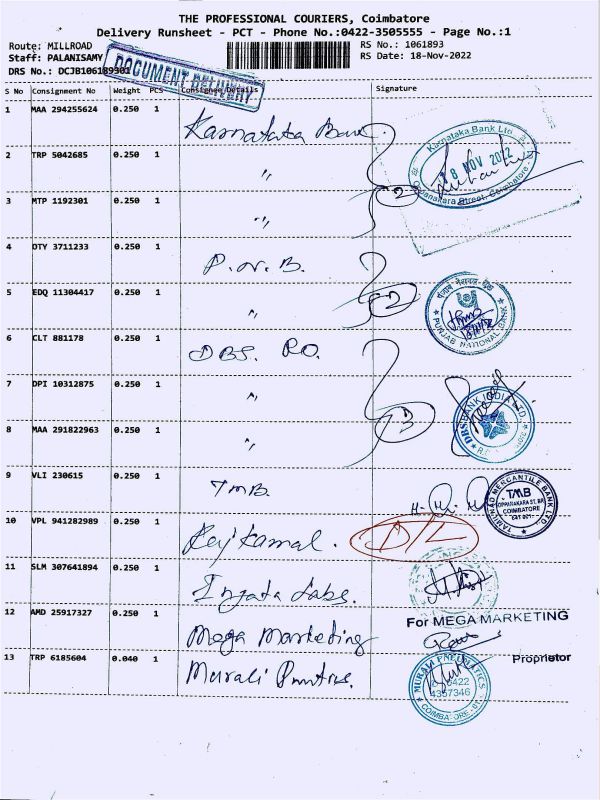 THE PROFESSIONAL COURIERS, Coimbatore
Delivery Runsheet - PCT - Phone No.:0422-3505555 - Page No.:1
Route: MILLROAD
RS No.: 1061893
Staff: PALANISAMY
RS Date: 18-Nov-2022
DRS No.: DCJB106189301
DOCUMENT DELIVERY
S No Consignment No Weight PCS Consignee Details Signature
1 MAA 294255624 0.250 1 Karnataka Bank
Karnataka Bank Ltd.
18 NOV 2022
Oppanakara Street, Coimbatore
2 TRP 5042685 0.250 1 "
3 MTP 1192301 0.250 1 "
2
4 OTY 3711233 0.250 1 P.N.B.
5 EDQ 11304417 0.250 1 "
2
पंजाब नैशनल बैंक
PUNJAB NATIONAL BANK
6 CLT 881178 0.250 1 DBS. RO.
7 DPI 10312875 0.250 1 "
8 MAA 291822963 0.250 1 "
3
DBS BANK INDIA LTD.
9 VLI 230615 0.250 1 TMB.
TAMILNAD MERCANTILE BANK LTD
TMB
OPPANAKARA ST. BR.
COIMBATORE
641 001
10 VPL 941282989 0.250 1 Rajkamal. D/L
11 SLM 307641894 0.250 1
12 AMD 25917327 0.250 1 Mega Marketing
For MEGA MARKETING
Proprietor
13 TRP 6185604 0.040 1 Murali
MURALI PNEUMATICS
0422
4357346
COIMBATORE - 01